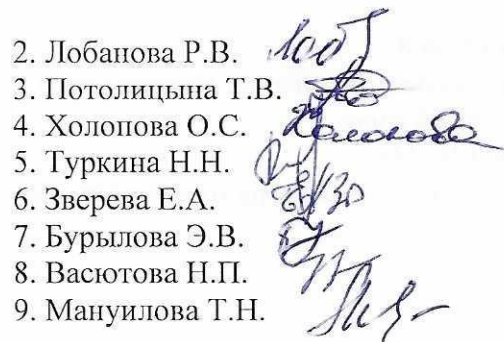 2. Лобанова Р.В.
3. Потолицына Т.В.
4. Холопова О.С. Холопова
5. Туркина Н.Н.
6. Зверева Е.А.
7. Бурылова Э.В.
8. Васютова Н.П.
9. Мануилова Т.Н.